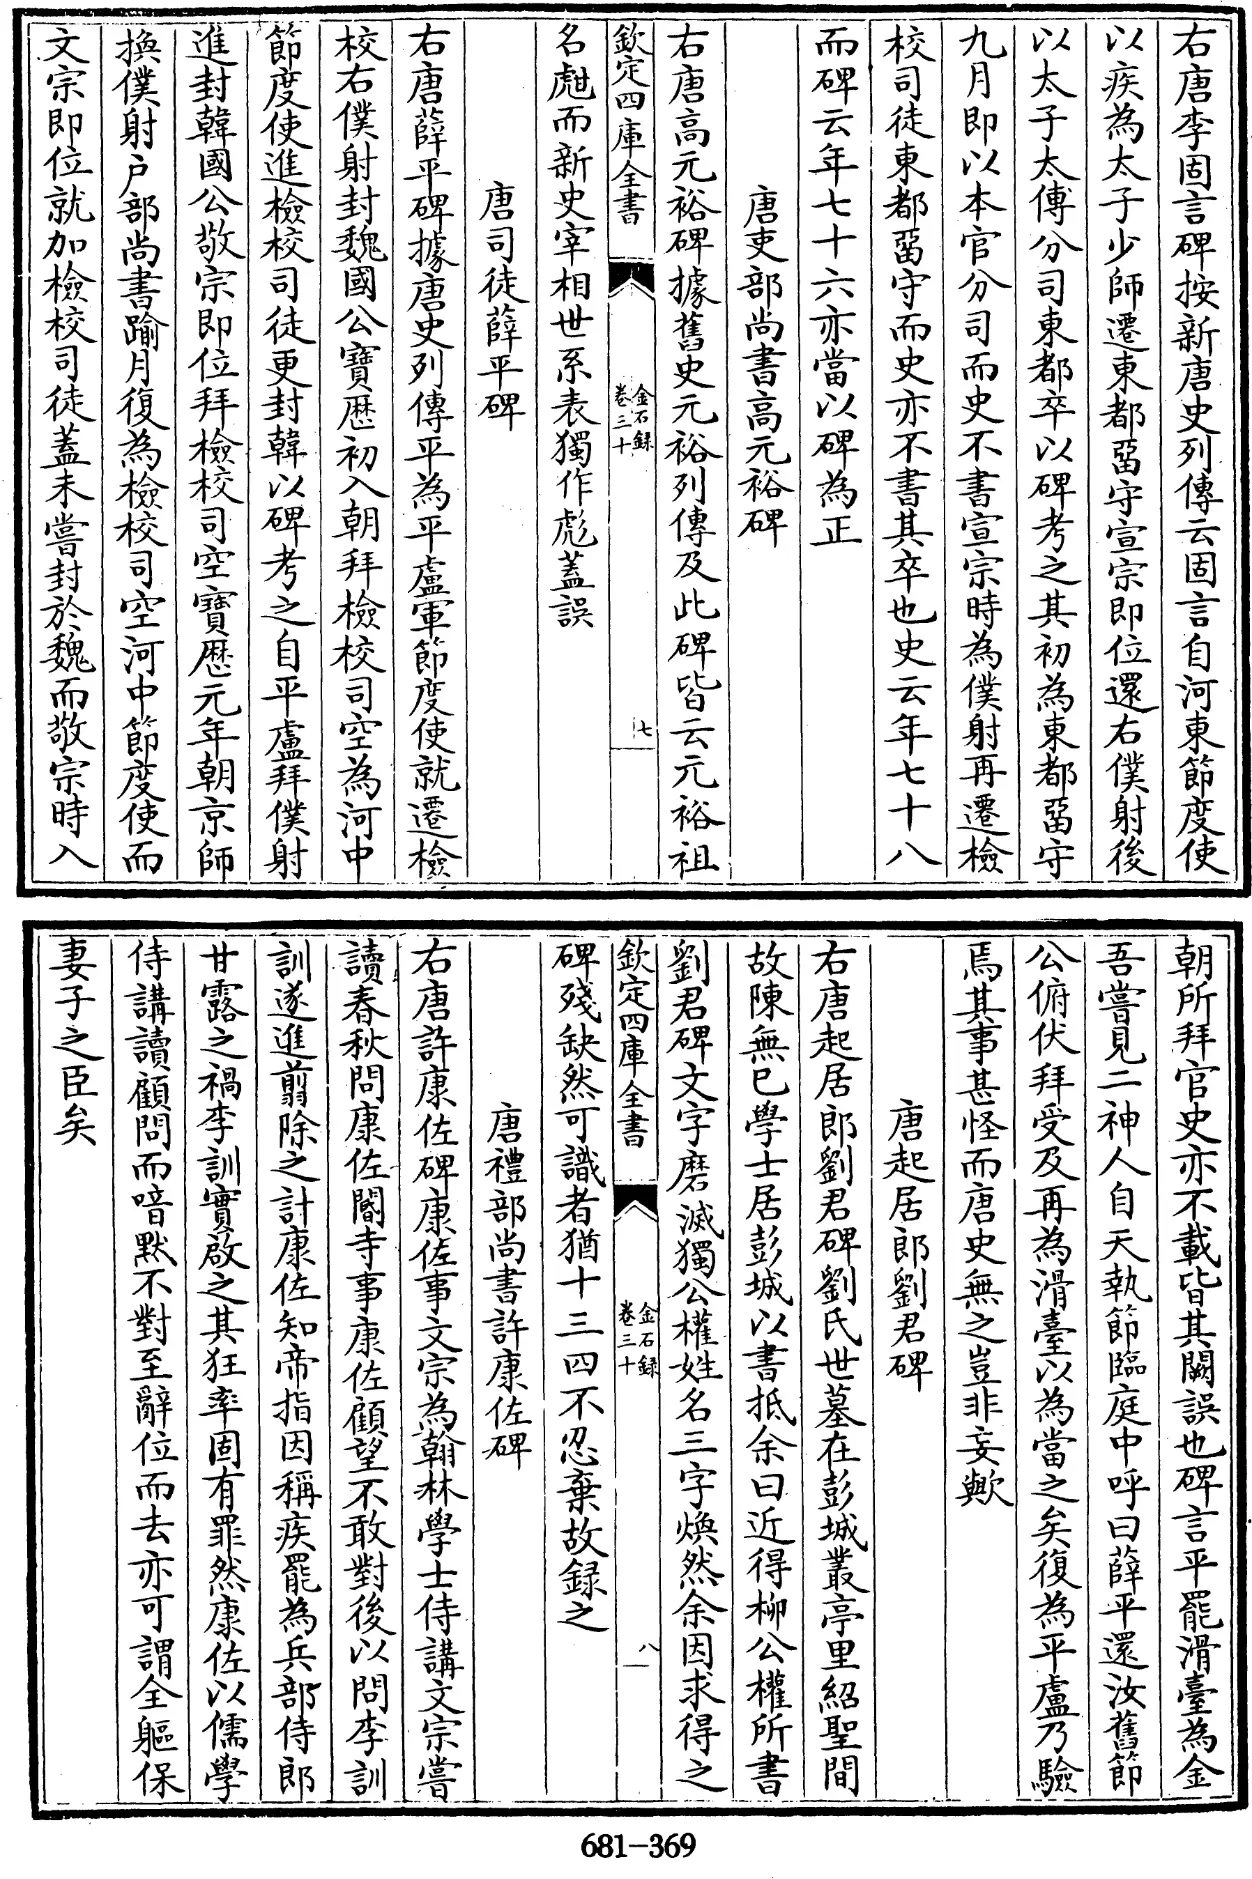 右唐李固言碑按新唐史列傳云固言自河東節度使
以疾為太子少師遷東都留守宣宗即位還右僕射後
以太子太傅分司東都卒以碑考之其初為東都留守
九月即以本官分司而史不書宣宗時為僕射再遷檢
校司徒東都留守而史亦不書其卒也史云年七十八
而碑云年七十六亦當以碑為正
唐吏部尚書高元裕碑
右唐高元裕碑據舊史元裕列傳及此碑皆云元裕祖
欽定四庫全書
金石録
卷三十
七
名彪而新史宰相世系表獨作彪蓋誤
唐司徒薛平碑
右唐薛平碑據唐史列傳平為平盧軍節度使就遷檢
校右僕射封魏國公寶歴初入朝拜檢校司空為河中
節度使進檢校司徒更封韓以碑考之自平盧拜僕射
進封韓國公敬宗即位拜檢校司空寶歴元年朝京師
換僕射户部尚書踰月復為檢校司空河中節度使而
文宗即位就加檢校司徒蓋未嘗封於魏而敬宗時入
朝所拜官史亦不載皆其闕誤也碑言平罷滑臺為金
吾嘗見二神人自天執節臨庭中呼曰薛平還汝舊節
公俯伏拜受及再為滑臺以為當之矣復為平盧乃驗
焉其事甚怪而唐史無之豈非妄歟
唐起居郎劉君碑
右唐起居郎劉君碑劉氏世墓在彭城叢亭里紹聖間
故陳無已學士居彭城以書抵余曰近得柳公權所書
劉君碑文字磨滅獨公權姓名三字煥然余因求得之
欽定四庫全書
金石録
卷三十
八
碑殘缺然可識者猶十三四不忍棄故録之
唐禮部尚書許康佐碑
右唐許康佐碑康佐事文宗為翰林學士侍講文宗嘗
讀春秋問康佐閽寺事康佐顧望不敢對後以問李訓
訓遂進翦除之計康佐知帝指因稱疾罷為兵部侍郎
甘露之禍李訓實啟之其狂率固有罪然康佐以儒學
侍講讀顧問而喑默不對至辭位而去亦可謂全軀保
妻子之臣矣
681-369